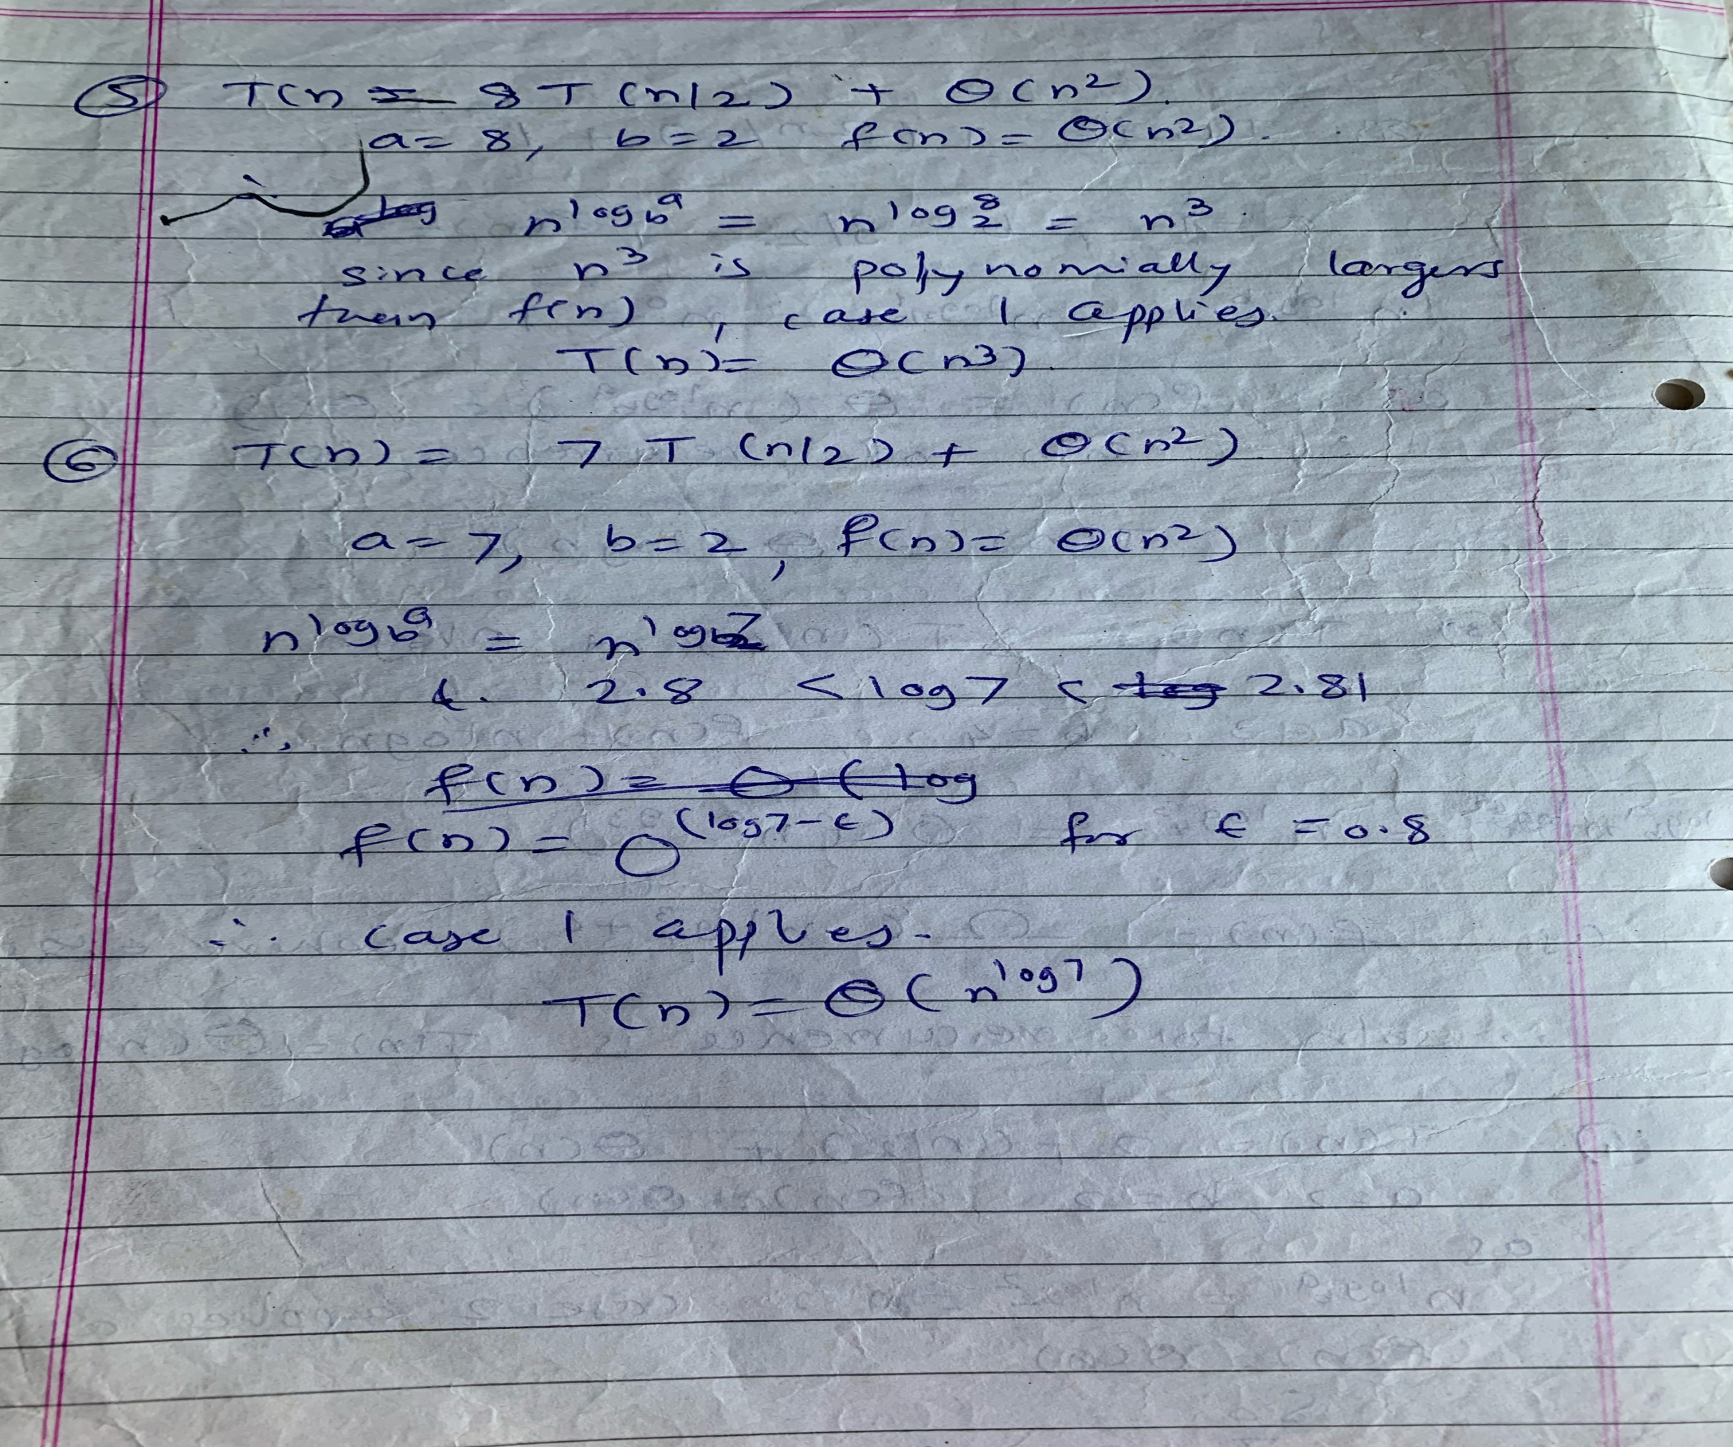 5 T(n = 8 T (n/2) + Θ(n²).
a = 8, b = 2 f(n) = Θ(n²).
n^log_b a = n^log_2 8 = n³.
since n³ is polynomially largers
than f(n), case 1 applies.
T(n) = Θ(n³).
6 T(n) = 7 T (n/2) + Θ(n²)
a = 7, b = 2, f(n) = Θ(n²)
n^log_b a = n^log 7
2.8 < log 7 < 2.81
∴
f(n) = Θ (log
f(n) = O^(log 7 - ε) for ε = 0.8
∴ case 1 applies.
T(n) = Θ(n^log 7)